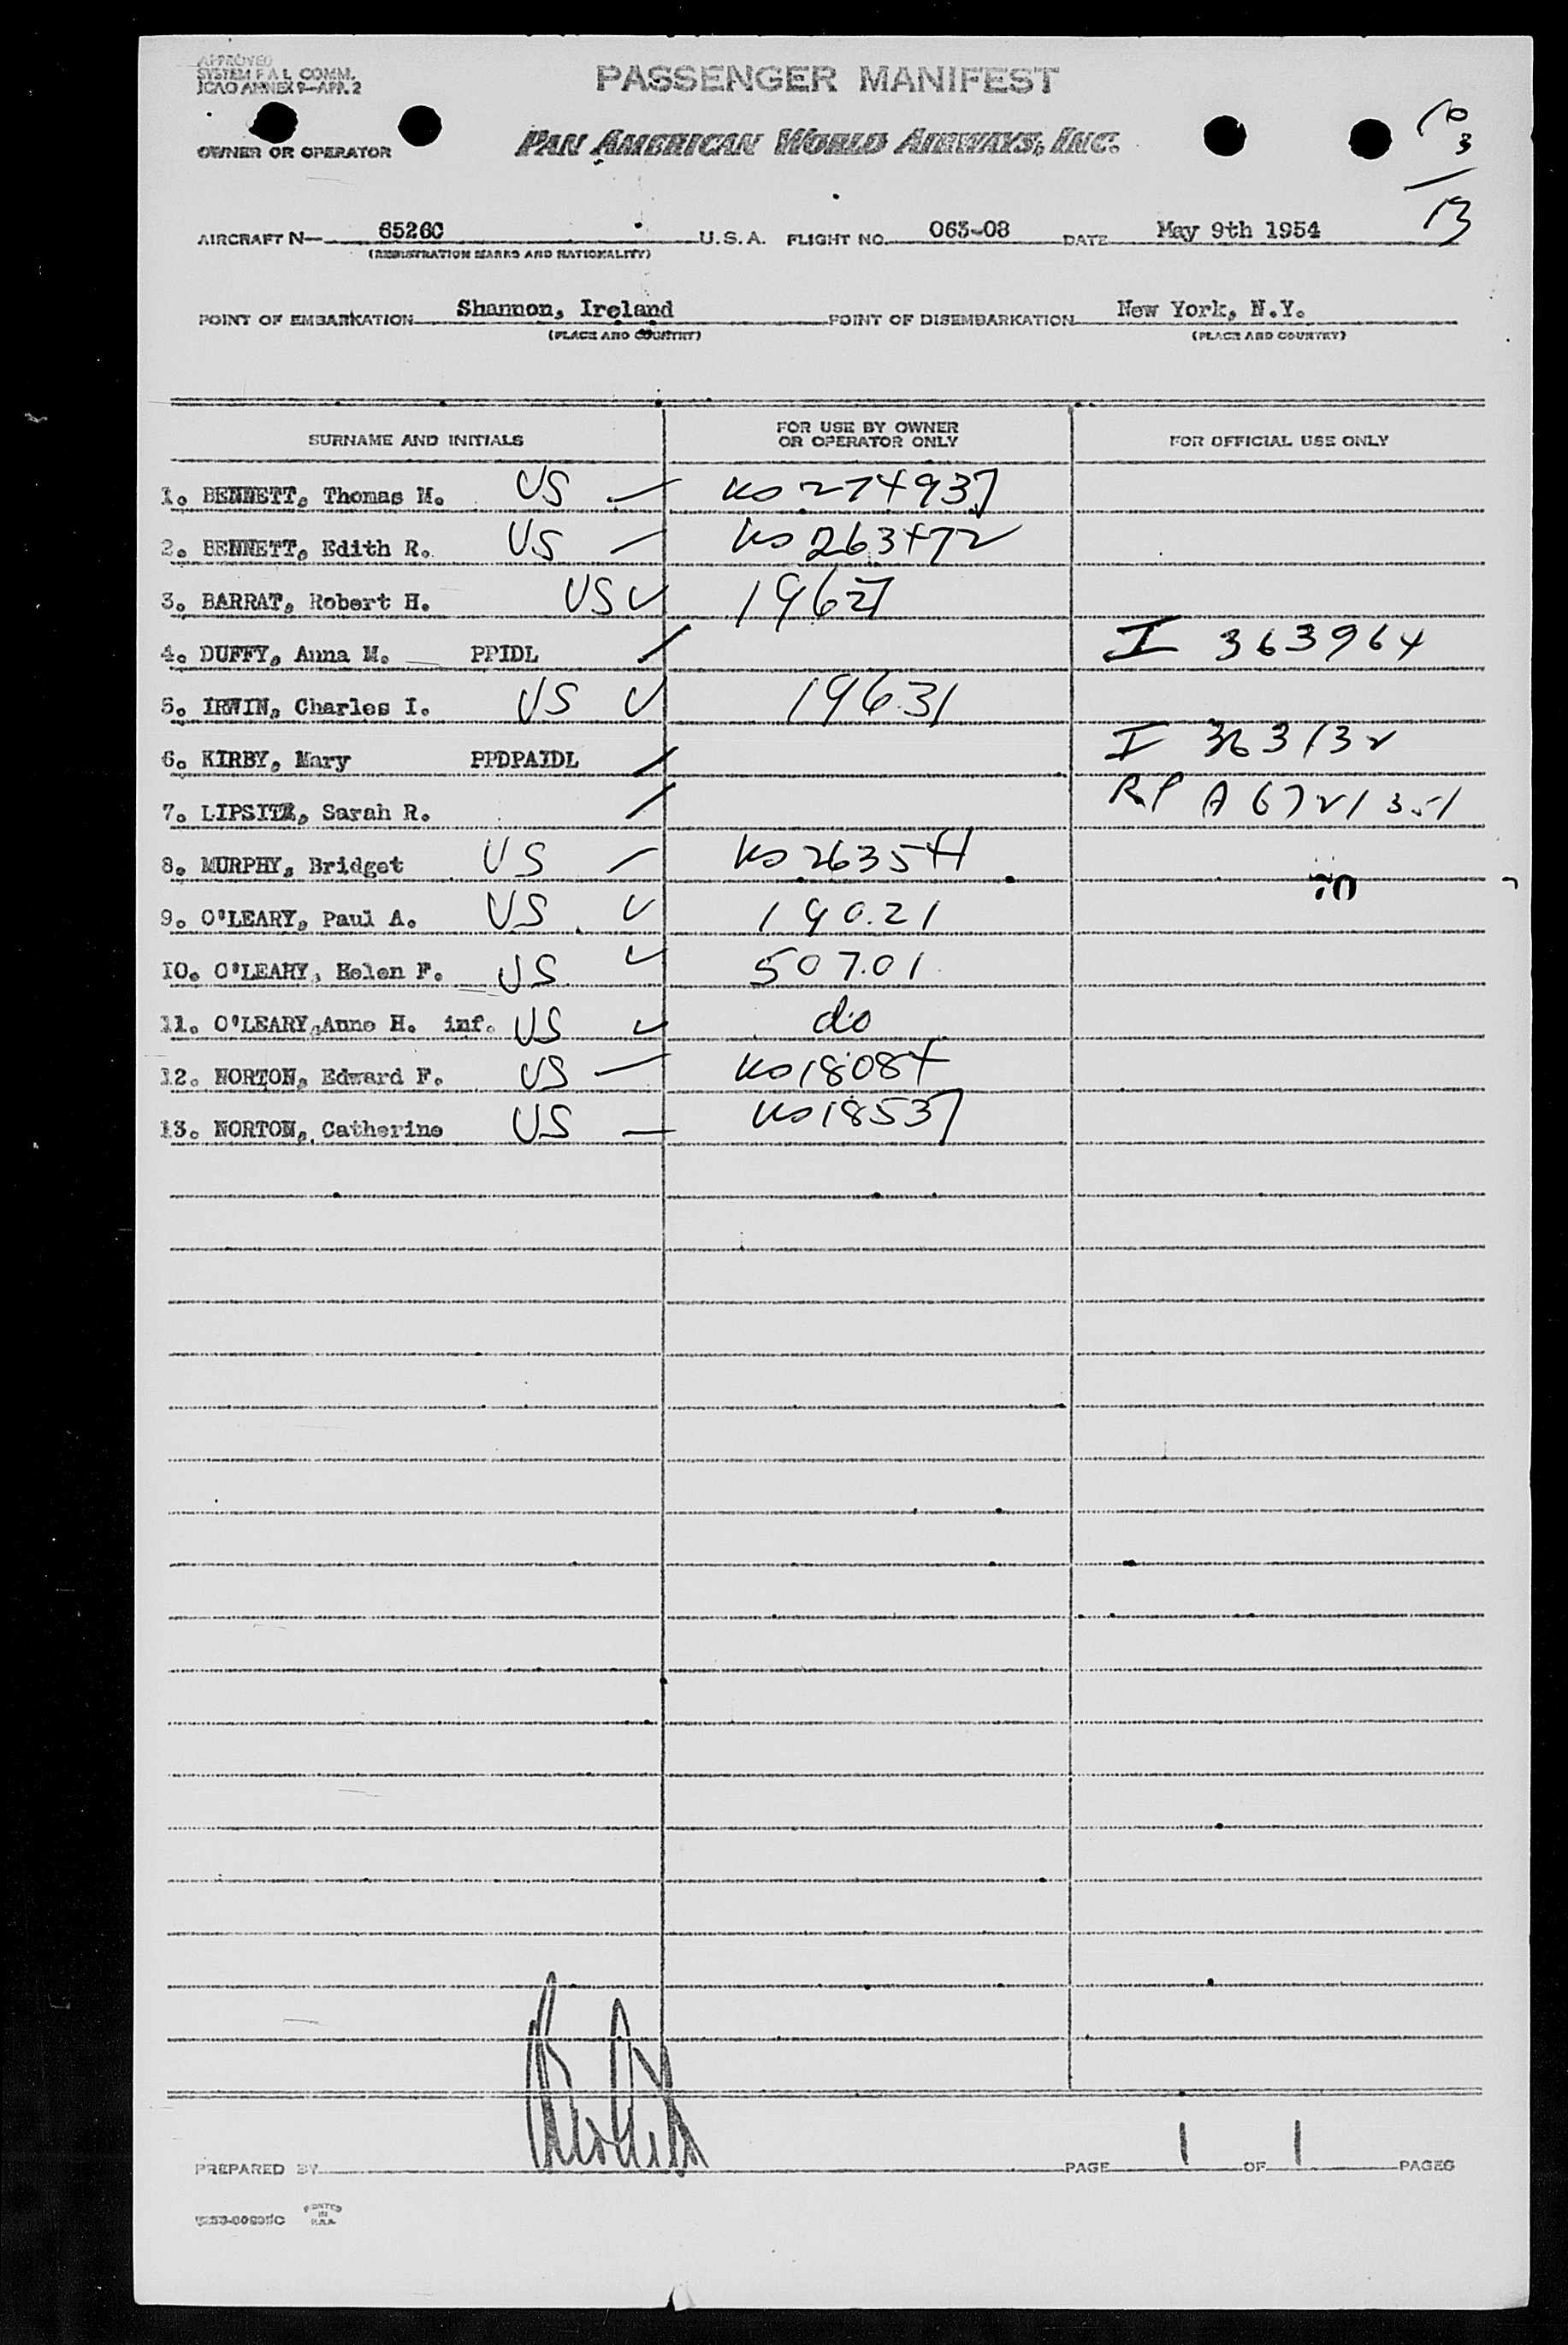 APPROVED
SYSTEM F A L COMM.
ICAO ANNEX 9-APP. 2
PASSENGER MANIFEST
OWNER OR OPERATOR
PAN AMERICAN WORLD AIRWAYS, INC.
10
3
13
AIRCRAFT N— 6526C U.S.A. FLIGHT NO. 063-08 DATE May 9th 1954
(REGISTRATION MARKS AND NATIONALITY)
POINT OF EMBARKATION Shannon, Ireland POINT OF DISEMBARKATION New York, N.Y.
(PLACE AND COUNTRY) (PLACE AND COUNTRY)
SURNAME AND INITIALS FOR USE BY OWNER OR OPERATOR ONLY FOR OFFICIAL USE ONLY
1. BENNETT, Thomas M. US — 274937
2. BENNETT, Edith R. US — 263472
3. BARRAT, Robert H. US ✓ 19627
4. DUFFY, Anna M. PPIDL / I 363964
5. IRWIN, Charles I. US ✓ 19631
6. KIRBY, Mary PPDPAIDL / I 363132
7. LIPSITZ, Sarah R. / RP A 6721351
8. MURPHY, Bridget US — 263544
9. O'LEARY, Paul A. US ✓ 190.21
10. O'LEARY, Helen F. US ✓ 507.01
11. O'LEARY, Anne H. inf. US ✓ do
12. NORTON, Edward F. US — 18084
13. NORTON, Catherine US — 18537
PREPARED BY PAGE 1 OF 1 PAGES
PRINTED
IN
U.S.A.